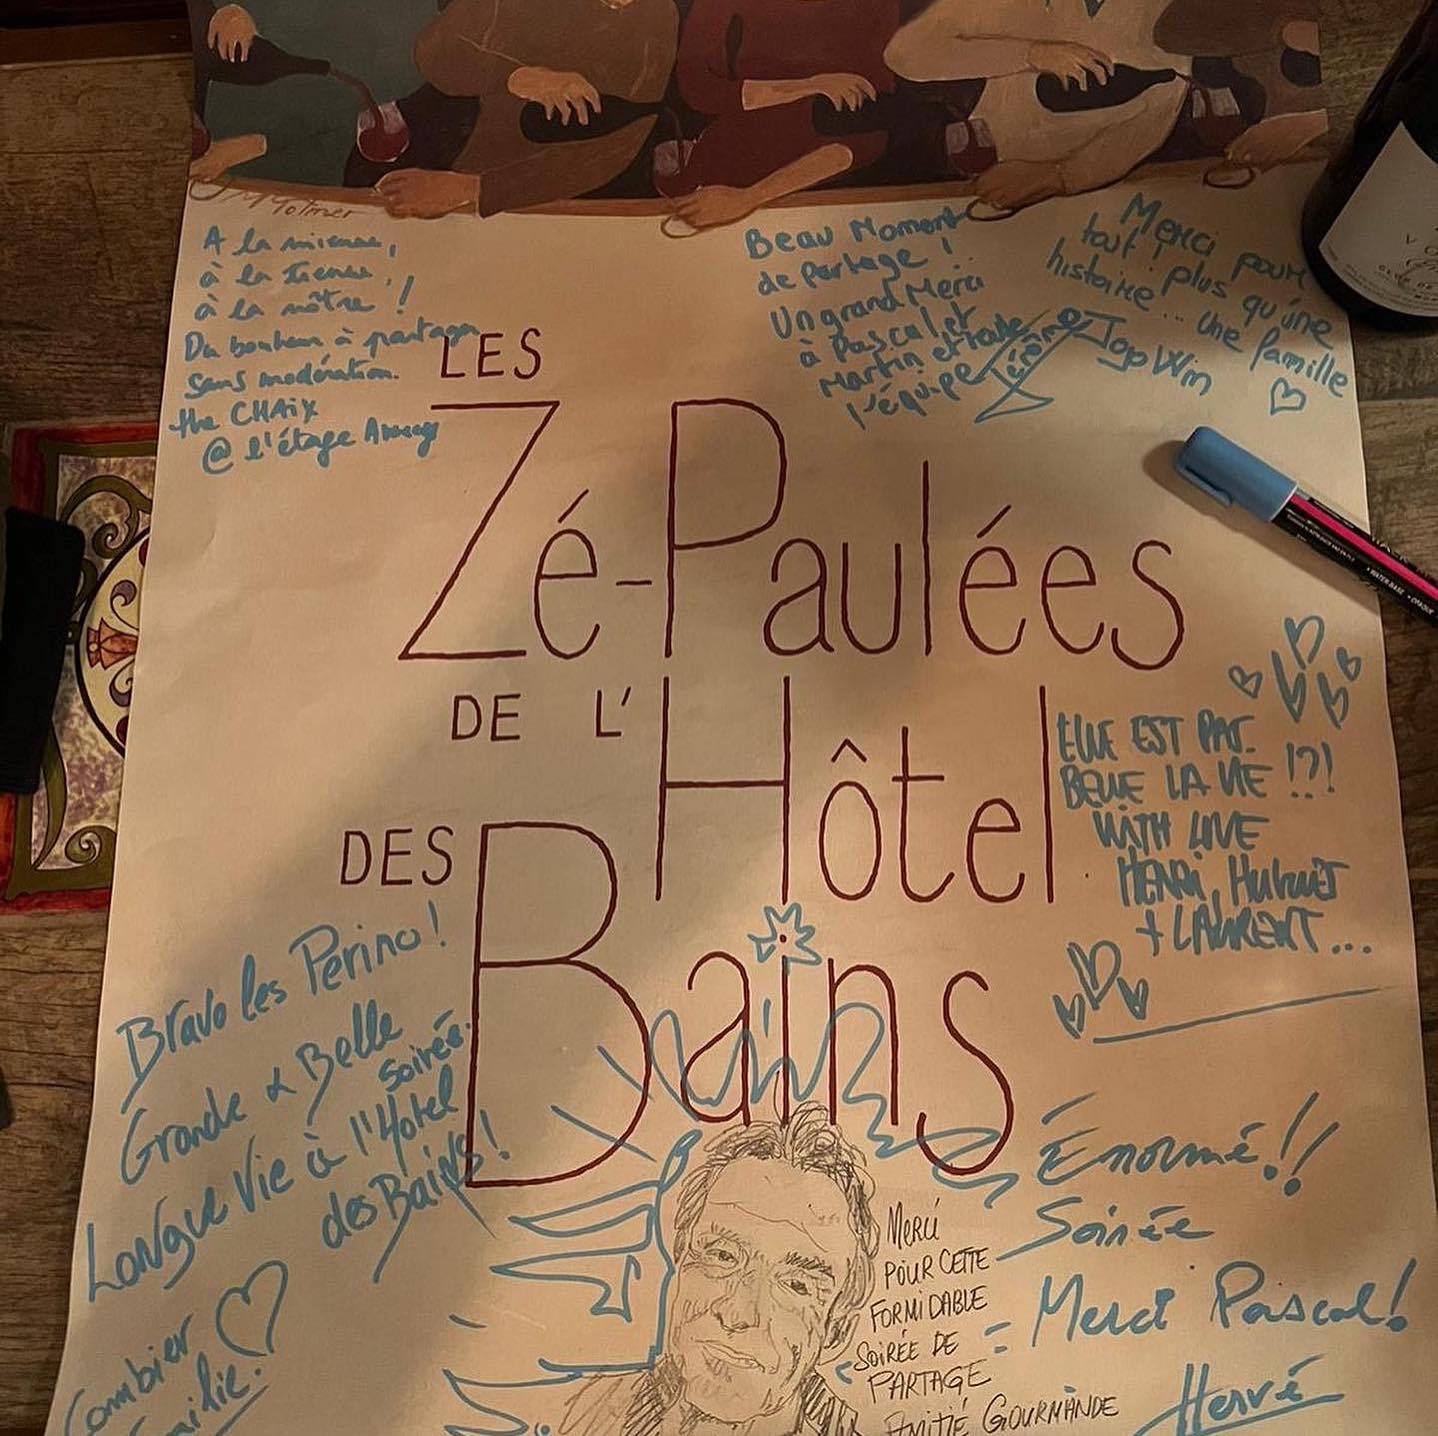 A la mienne,
à la tienne,
à la nôtre !
Du bonheur à partager
sans modération.
the CHAix
@ l'étage
Beau Moment
de partage !
Un grand Merci
à Pascal et
Martin et toute
l'équipe
Jérôme
Merci pour
tout, plus qu'une
histoire... Une famille
Jojo Win
LES
Zé-Paulées
DE L'Hôtel
DES Bains
ELLE EST PAS
BELLE LA VIE !?!
WITH LIVE
HENRI, HUBERT
+ LAURENT...
Bravo les Perino !
Grande & Belle
soirée.
Longue Vie à l'Hotel
des Bains !
Combier
Émilie.
Merci
POUR CETTE
FORMIDABLE
SOIRÉE DE
PARTAGE
AMITIÉ GOURMANDE
Énorme!!
Soirée
Merci Pascal!
Hervé
WATER BASE • OPAQUE